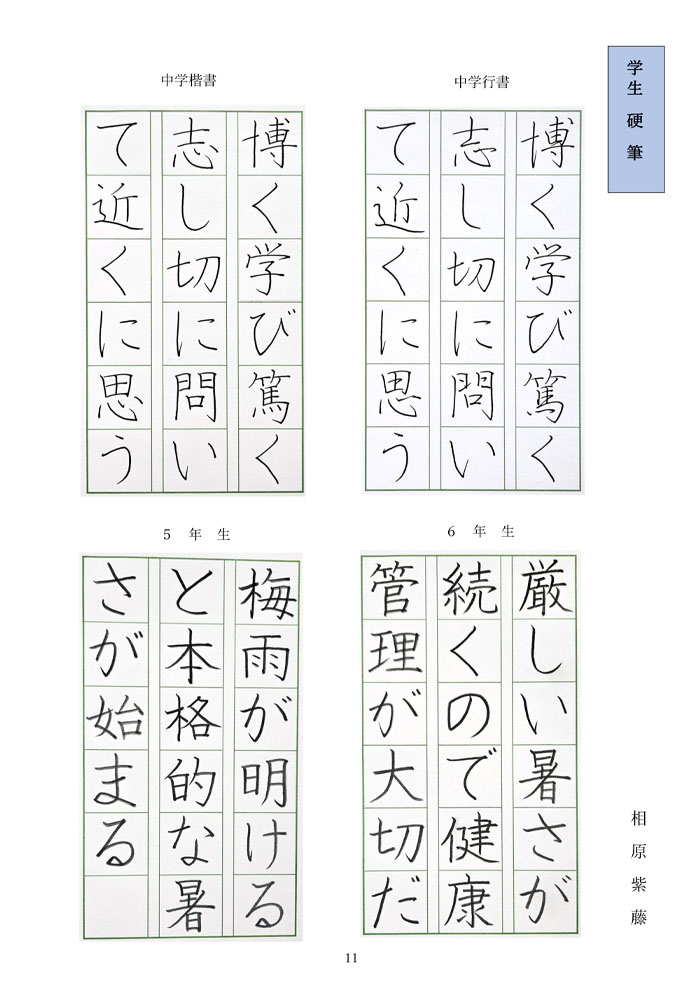 学生 硬筆
中学行書
博く学び篤く
志し切に問い
て近くに思う
中学楷書
博く学び篤く
志し切に問い
て近くに思う
6 年 生
厳しい暑さが
続くので健康
管理が大切だ
5 年 生
梅雨が明ける
と本格的な暑
さが始まる
相原紫藤
11